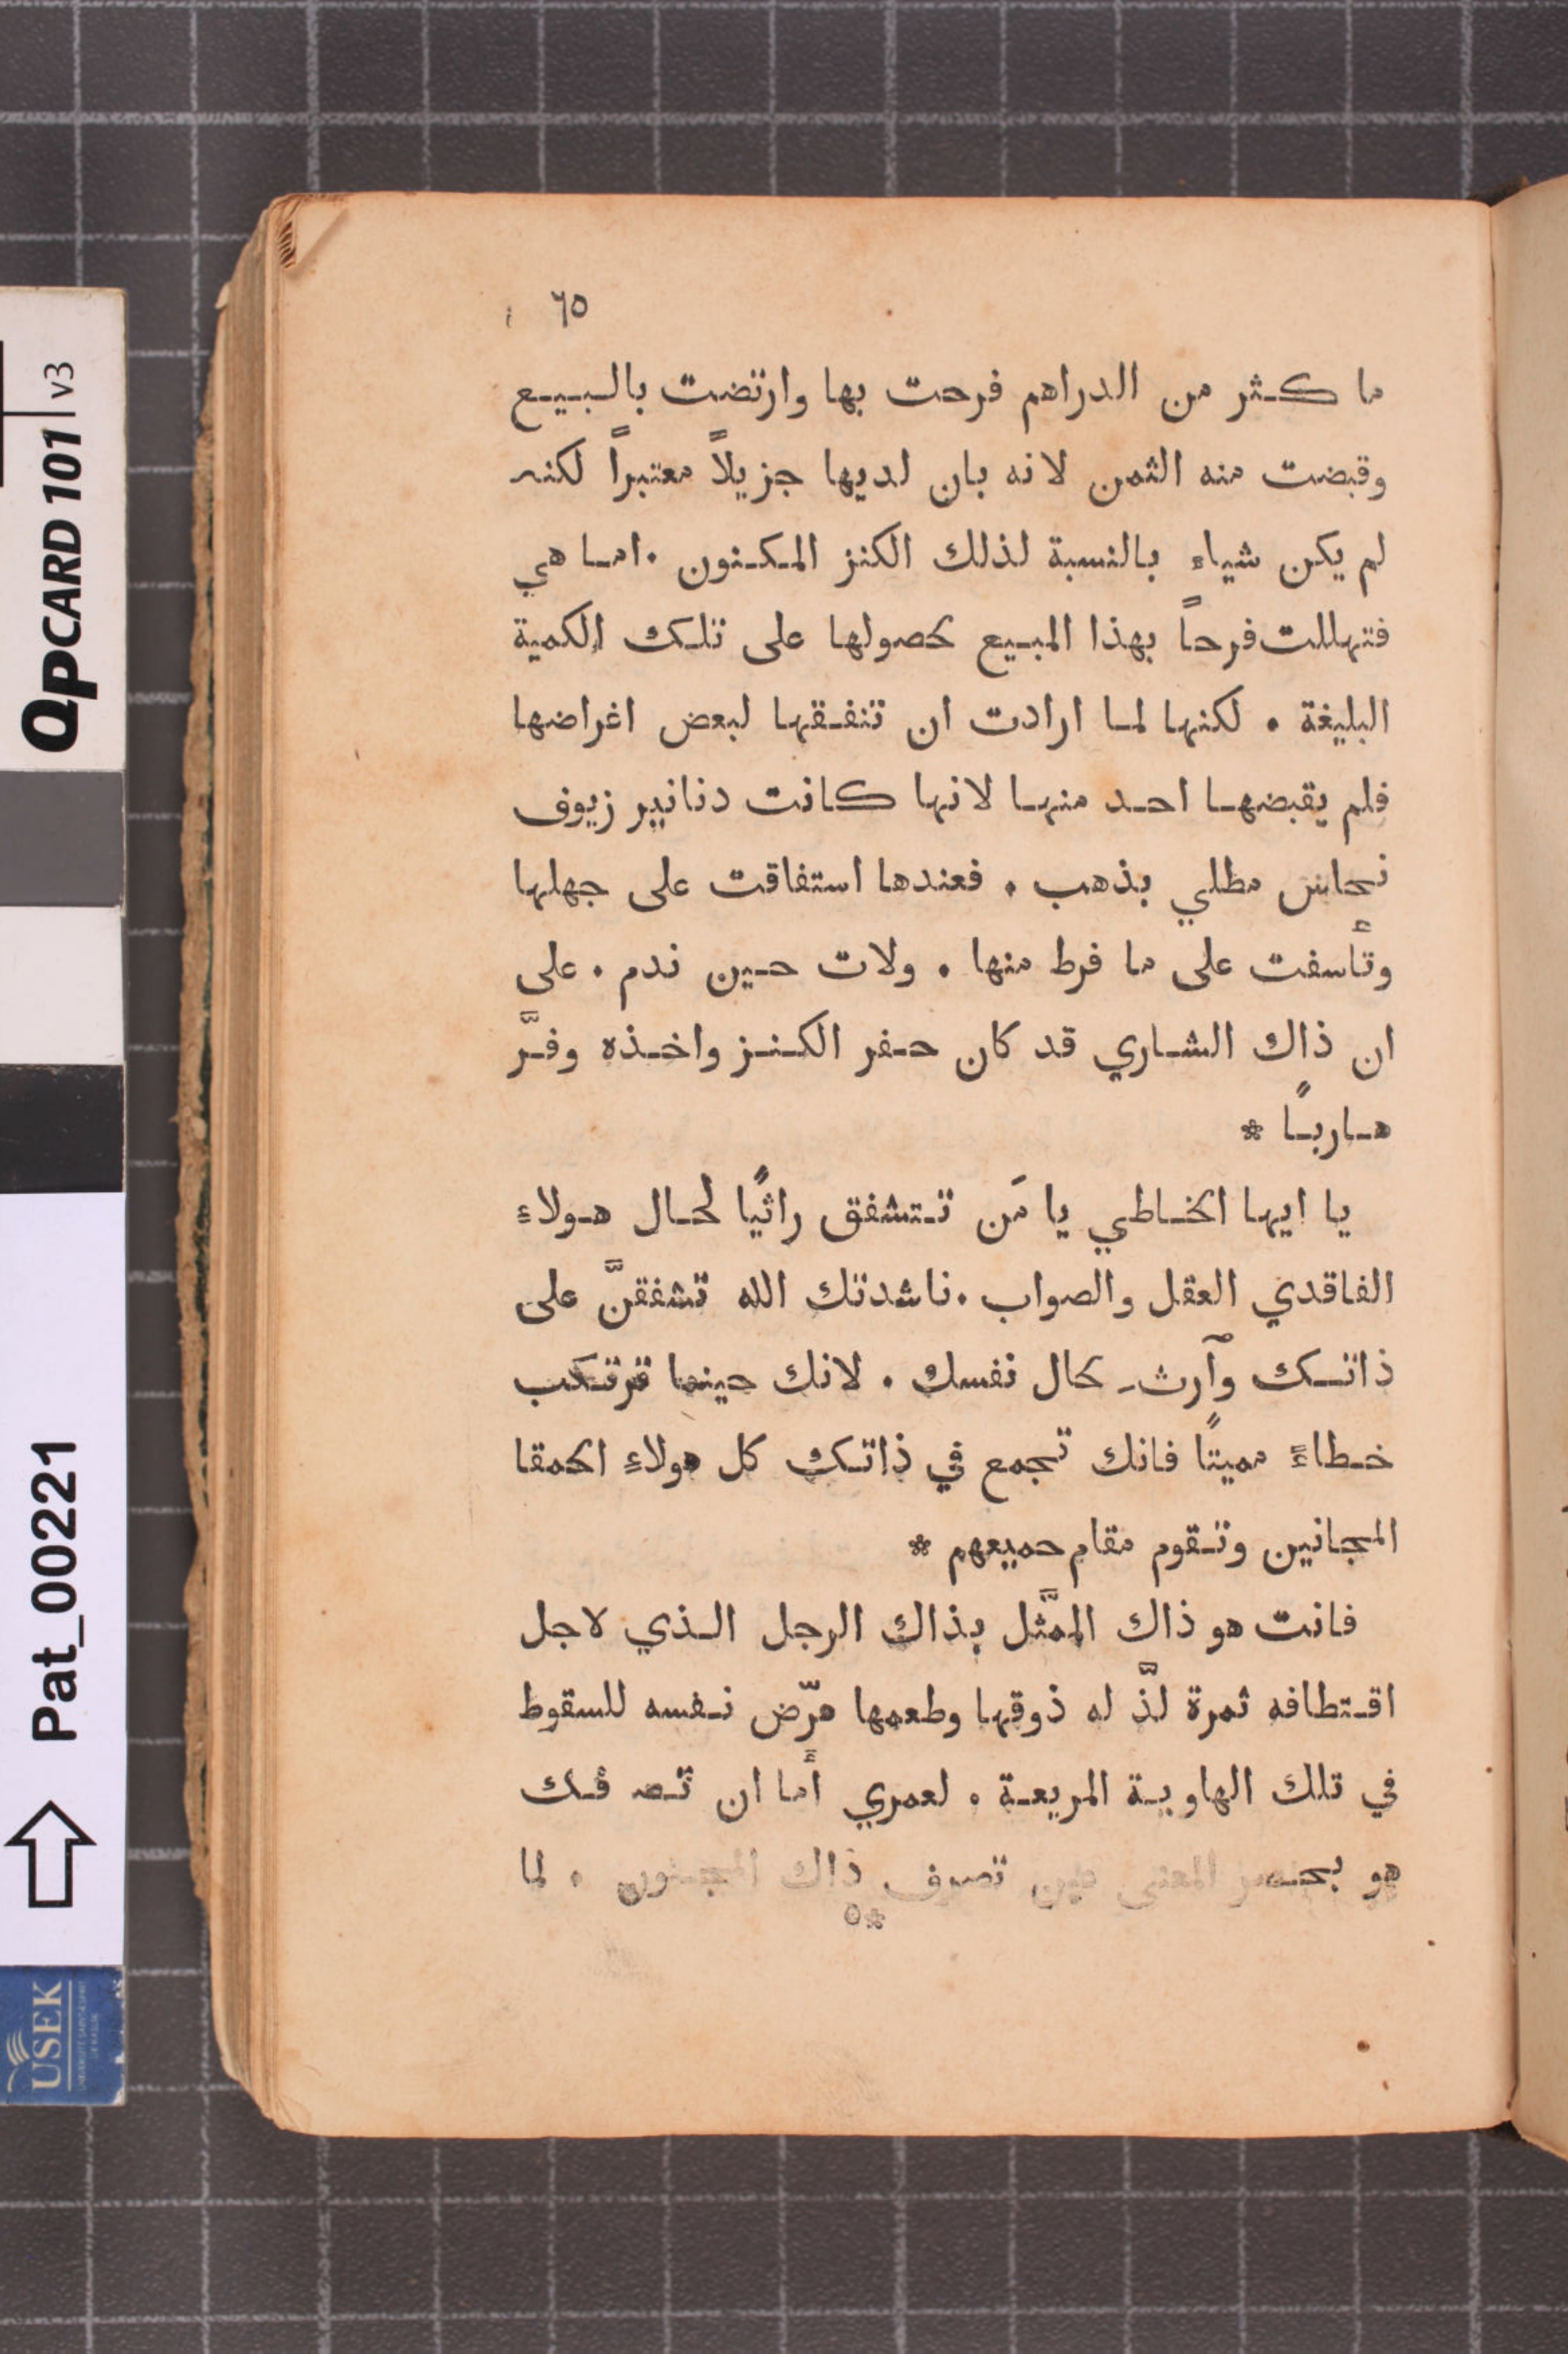 ٦٥
ما كثر من الدراهم فرحت بها وارتضت بالبيع
وقبضت منه الثمن لانه بان لديها جزيلاً معتبراً لكنه
لم يكن شياء بالنسبة لذلك الكنز المكنون . اما هي
فتهللت فرحاً بهذا المبيع لحصولها على تلك الكمية
البليغة . لكنها لما ارادت ان تنفقها لبعض اغراضها
فلم يقبضها احد منها لانها كانت دنانير زيوف
نحاس مطلي بذهب . فعندها استفاقت على جهلها
وتأسفت على ما فرط منها . ولات حين ندم . على
ان ذاك الشاري قد كان حفر الكنز واخذه وفرَّ
هاربًا *
يا ايها الخاطي يا مَن تتشفق راثيًا لحال هولاء
الفاقدي العقل والصواب . ناشدتك الله تشفقنَّ على
ذاتك وآرثِ لحال نفسك . لانك حينما ترتكب
خطاءً مميتًا فانك تجمع في ذاتك كل هولاءِ الحمقا
المجانين وتقوم مقام جميعهم *
فانت هو ذاك الممَّثل بذاك الرجل الذي لاجل
اقتطافه ثمرة لذَّ له ذوقها وطعمها عرّض نفسه للسقوط
في تلك الهاوية المريعة . لعمري أما ان تصرفك
هو بحصر المعنى عين تصرف ذاك المجنون . لما
*٥
QPCARD 101 v3
Pat_00221
USEK